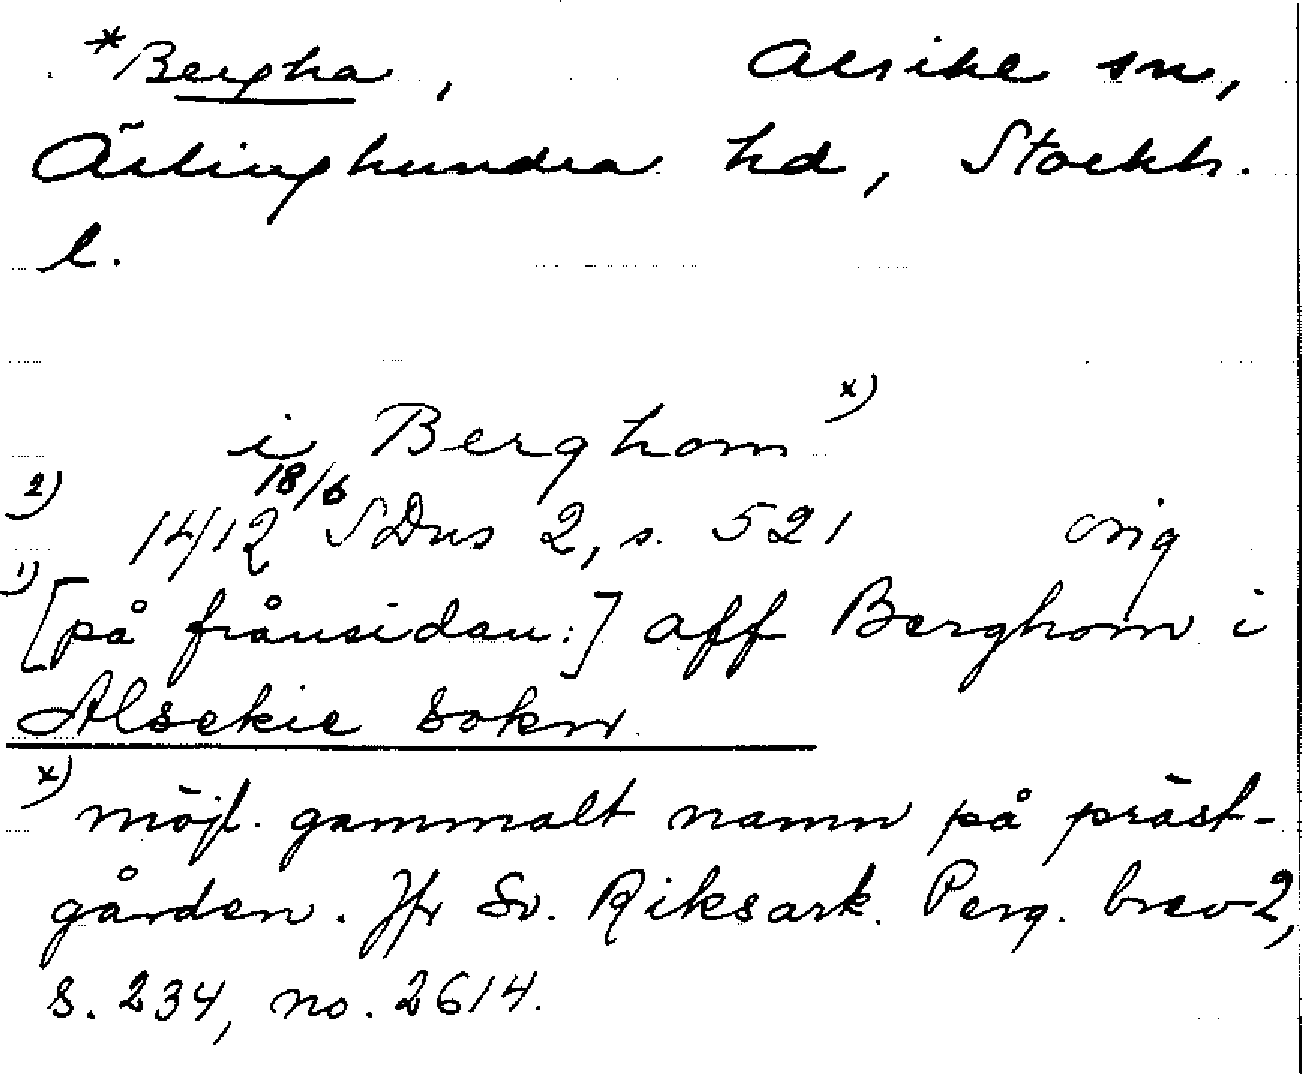 *Bergha, Alsike sn,
Ärlinghundra hd, Stockh.
l.
i Berghom x)
2) 1412 18/6 SDns 2, s. 521 orig
1) [på frånsidan:] aff Berghom i
Alsekie sokn
x) möjl. gammalt namn på präst-
gården. Jfr Sv. Riksark. Perg. brev 2,
s. 234, no. 2614.